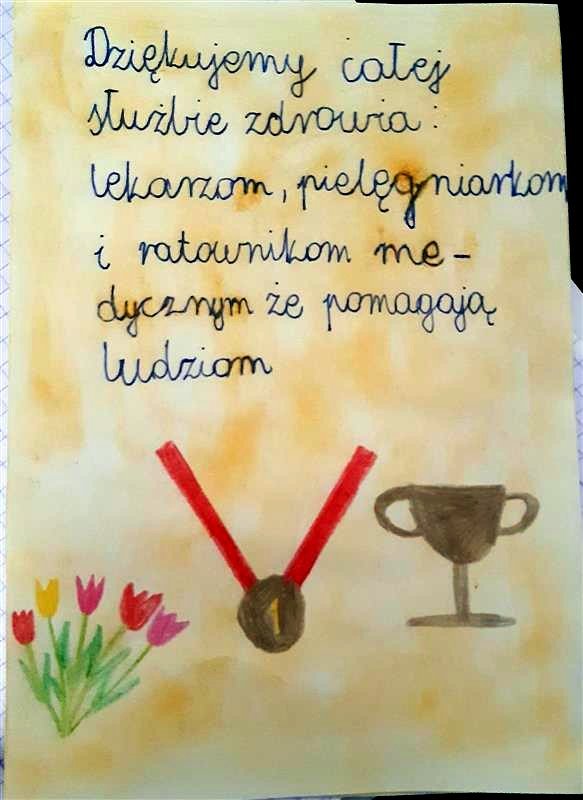 Dziękujemy całej
służbie zdrowia:
lekarzom, pielęgniarkom
i ratownikom me-
dycznym że pomagają
ludziom
1